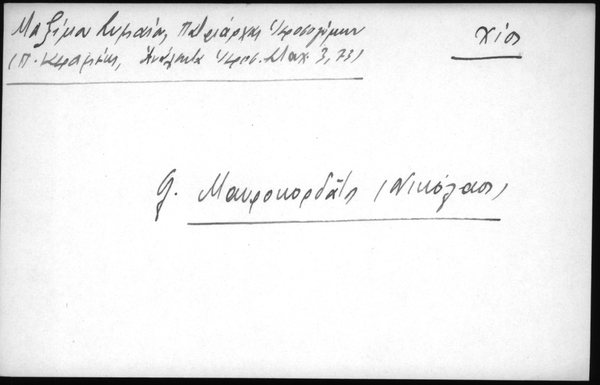 Μαξίμου Συμαίου, Πατριάρχου Ἱεροσολύμων
(Π. Κεραμεύς, Ἀνάλεκτα Ἱεροσ. Σταχ. 3, 73)
Χίος
βλ. Μαυροκορδᾶτος (Νικόλαος)